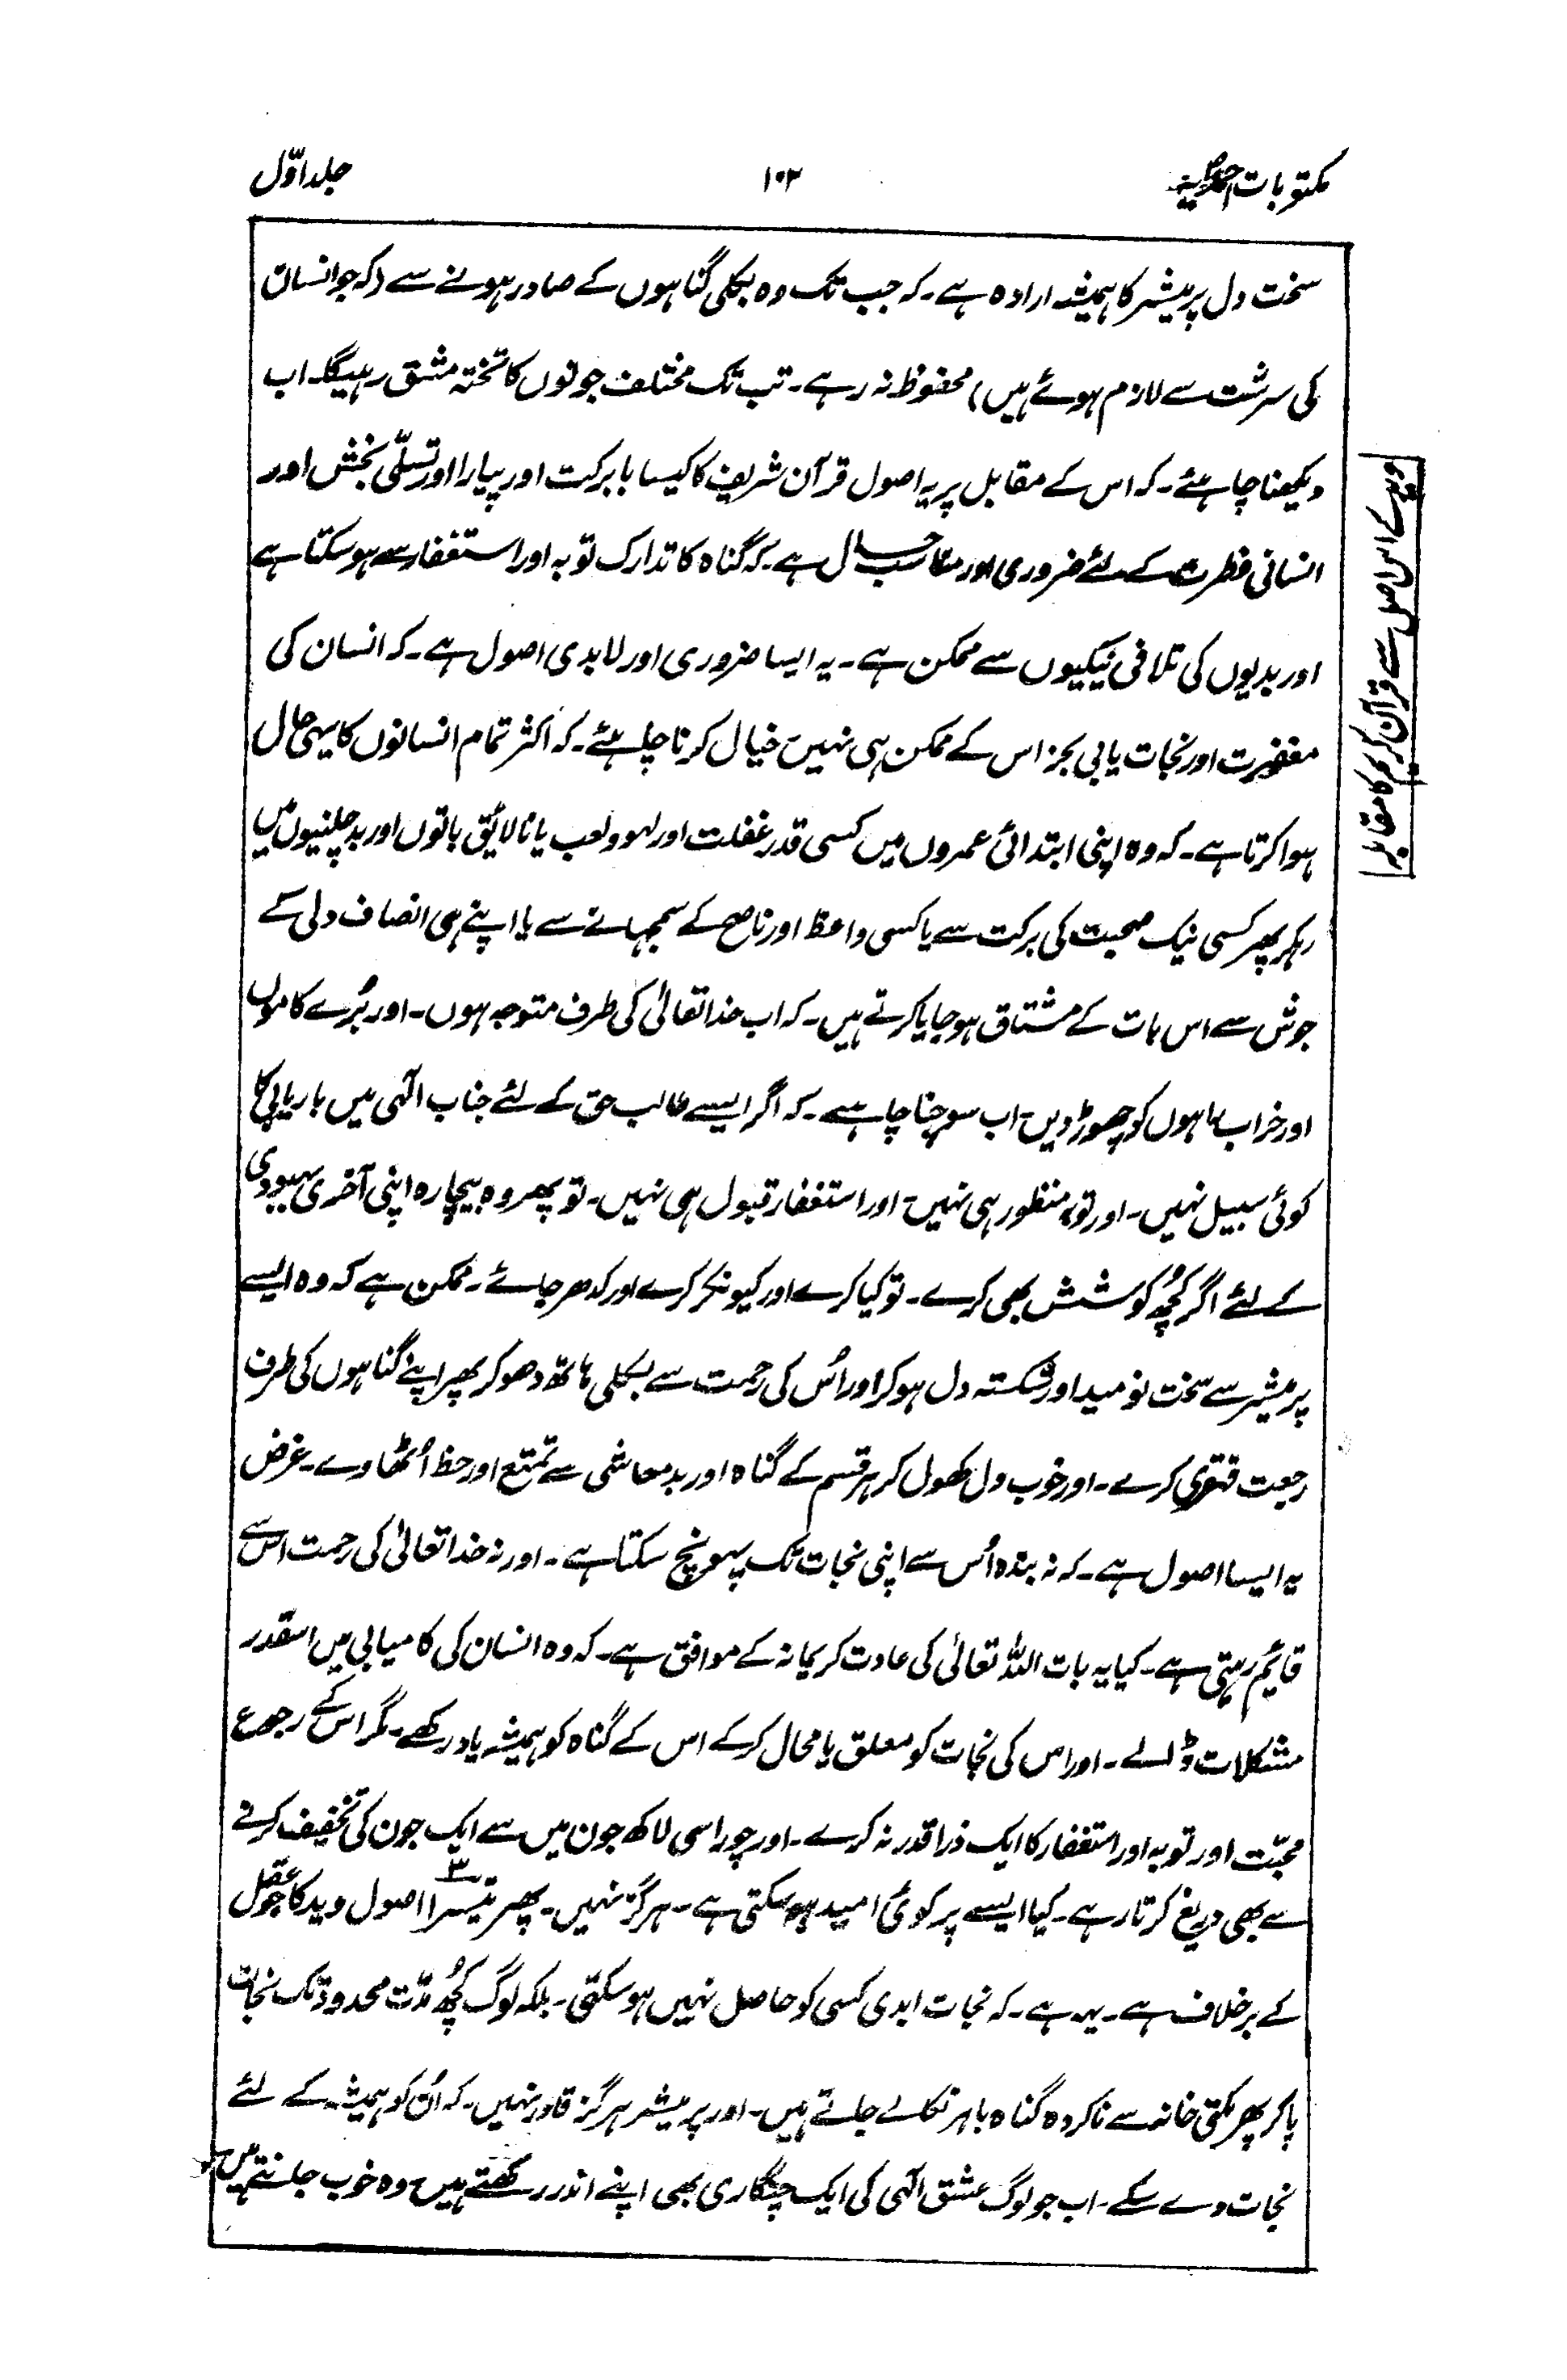 مکتوبات احمدیہ
۱۰۳
جلد اوّل
سخت دل پرمیشر کا ہمیشہ ارادہ ہے۔ کہ جب تک وہ بکلی گناہوں کے صادر ہونے سے (کہ جو انسان
کی سرشت سے لازم ہوئے ہیں) محفوظ نہ رہے۔ تب تک مختلف جونوں کا تختہ مشق رہیگا۔ اب
دیکھنا چاہئے۔ کہ اس کے مقابل پر یہ اصول قرآن شریف کا کیسا بابرکت اور پیارا اور تسلّی بخش اور
انسانی فطرت کے لئے ضروری اور مناسب حال ہے۔ کہ گناہ کا تدارک توبہ اور استغفار سے ہو سکتا ہے
اور بدیوں کی تلافی نیکیوں سے ممکن ہے۔ یہ ایسا ضروری اور لابدی اصول ہے۔ کہ انسان کی
مغفرت اور نجات یابی بجز اس کے ممکن ہی نہیں۔ خیال کرنا چاہئے۔ کہ اکثر تمام انسانوں کا یہی حال
ہوا کرتا ہے۔ کہ وہ اپنی ابتدائی عمروں میں کسی قدر غفلت اور لہو و لعب یا نالائق باتوں اور بدچلنیوں میں
رہکر پھر کسی نیک صحبت کی برکت سے یا کسی واعظ اور ناصح کے سمجہانے سے یا اپنے ہی انصاف دلی کے
جوش سے اس بات کے مشتاق ہو جایا کرتے ہیں۔ کہ اب خدا تعالیٰ کی طرف متوجہ ہوں۔ اور بُرے کاموں
اور خراب راہوں کو چھوڑ دیں۔ اب سوچنا چاہیے۔ کہ اگر ایسے طالب حق کے لئے جناب الٰہی میں باریابی کا
کوئی سبیل نہیں۔ اور توبہ منظور ہی نہیں۔ اور استغفار قبول ہی نہیں۔ تو پھر وہ بیچارہ اپنی آخری بہبودی
کے لئے اگر کُچھ کوشش بھی کرے۔ تو کیا کرے اور کیونکر کرے اور کدھر جائے۔ ممکن ہے کہ وہ ایسے
پرمیشر سے سخت نومید اور شکستہ دل ہو کر اور اُس کی رحمت سے بکلی ہاتھ دھو کر پھر اپنے گناہوں کی طرف
رجعت قہقری کرے۔ اور خوب دل کھول کر ہر قسم کے گناہ اور بدمعاشی سے تمتع اور حظ اُٹھاوے۔ غرض
یہ ایسا اصول ہے۔ کہ نہ بندہ اُس سے اپنی نجات تک پہونچ سکتا ہے۔ اور نہ خدا تعالیٰ کی رحمت اس سے
قایم رہتی ہے۔ کیا یہ بات اللہ تعالیٰ کی عادت کریمانہ کے موافق ہے۔ کہ وہ انسان کی کامیابی میں اسقدر
مشکلات ڈالے۔ اور اس کی نجات کو معلق یا محال کر کے اس کے گناہ کو ہمیشہ یاد رکھے۔ مگر اس کے رجوع
محبّت اور توبہ اور استغفار کا ایک ذرا قدر نہ کرے۔ اور چوراسی لاکھ جون میں سے ایک جون کی تخفیف کرنے
سے بھی دریغ کرتا رہے۔ کیا ایسے پر کوئی امید ہو سکتی ہے۔ ہرگز نہیں۔ پھر تیسرا ۳ اصول وید کا جو عقل
کے برخلاف ہے۔ یہہ ہے۔ کہ نجات ابدی کسی کو حاصل نہیں ہو سکتی۔ بلکہ لوگ کُچھ مدّت محدود تک نجات
پا کر پھر مکتی خانہ سے ناکردہ گناہ باہر نکالے جاتے ہیں۔ اور پرمیشر ہرگز قادر نہیں۔ کہ اُن کو ہمیشہ کے لئے
نجات دے سکے۔ اب جو لوگ عشق الٰہی کی ایک چنگاری بھی اپنے اندر رکھتے ہیں۔ وہ خوب جانتے ہیں
وید کے اس اصل سے قرآن کریم کا مقابلہ